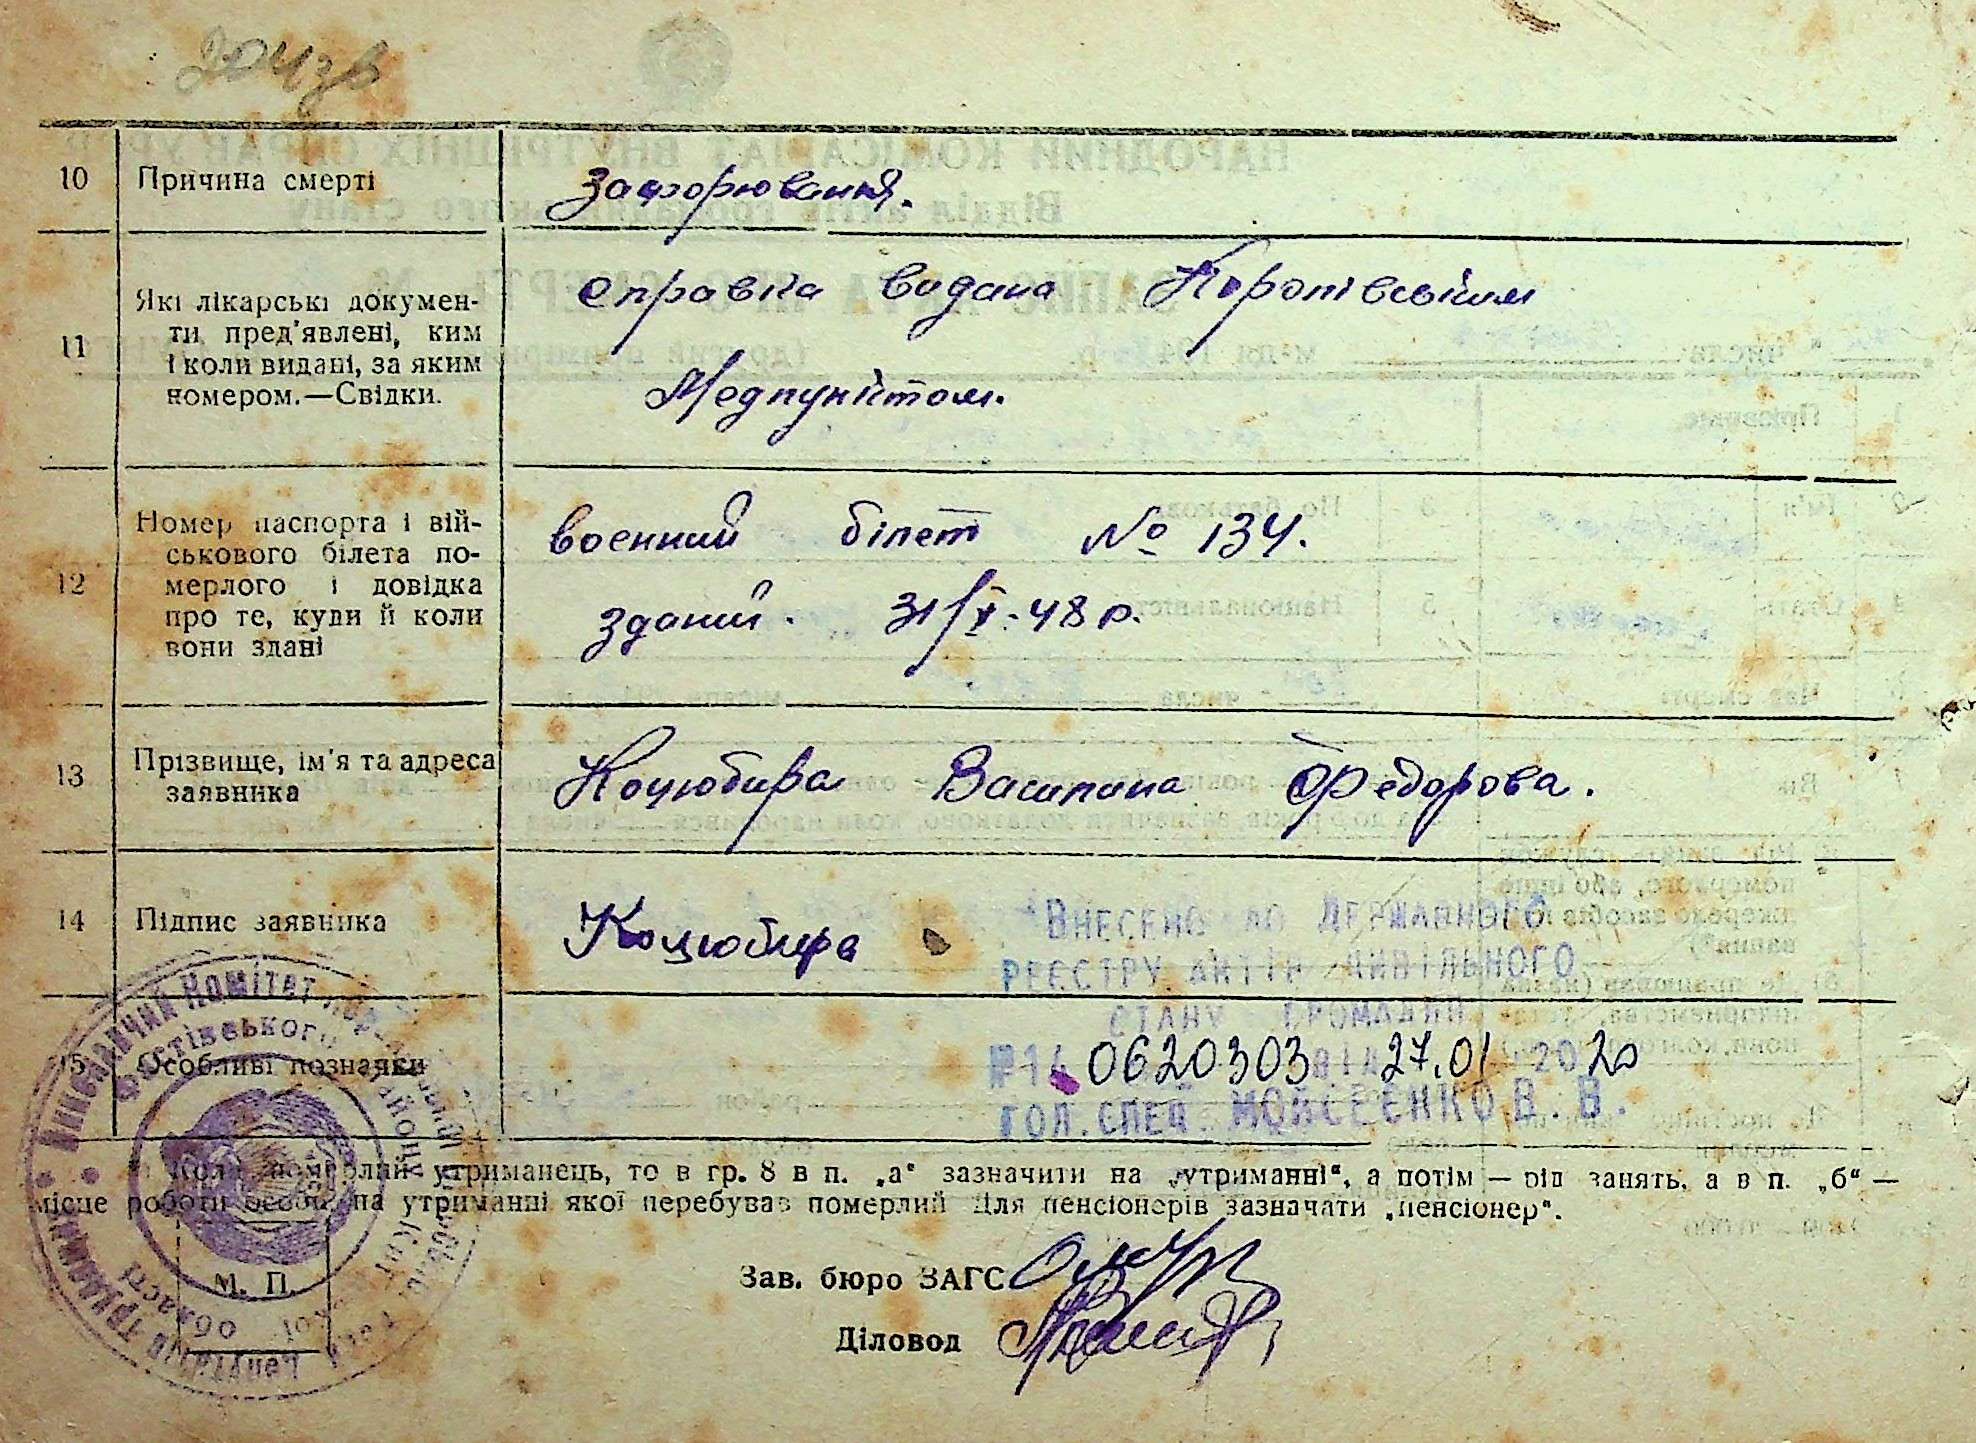 10 Причина смерті
захорювання.
11 Які лікарські докумен-
ти пред'явлені, ким
і коли видані, за яким
номером.—Свідки.
справка видана
Медпунктом.
12 Номер паспорта і вій-
ськового білета по-
мерлого і довідка
про те, куди й коли
вони здані
военний білет № 134.
зданий. 31/X-48 р.
13 Прізвище, ім'я та адреса
заявника
Коцюбира Василина Федорова.
14 Підпис заявника
Коцюбира
15 Особливі познаяки
Внесено до Державного
реєстру актів цивільного
стану громадян
№ 1 0620303 від 27.01 2020
гол. спец. Моисеєнко В. В.
Коли померлий утриманець, то в гр. 8 в п. „а“ зазначити на „утриманні“, а потім — рід занять, а в п. „б“ —
місце роботи особи, на утриманні якої перебував померлий Для пенсіонерів зазначати „пенсіонер“.
Зав. бюро ЗАГС
Діловод
М. П.
Виконавчий Комітет
Фастівського району
області